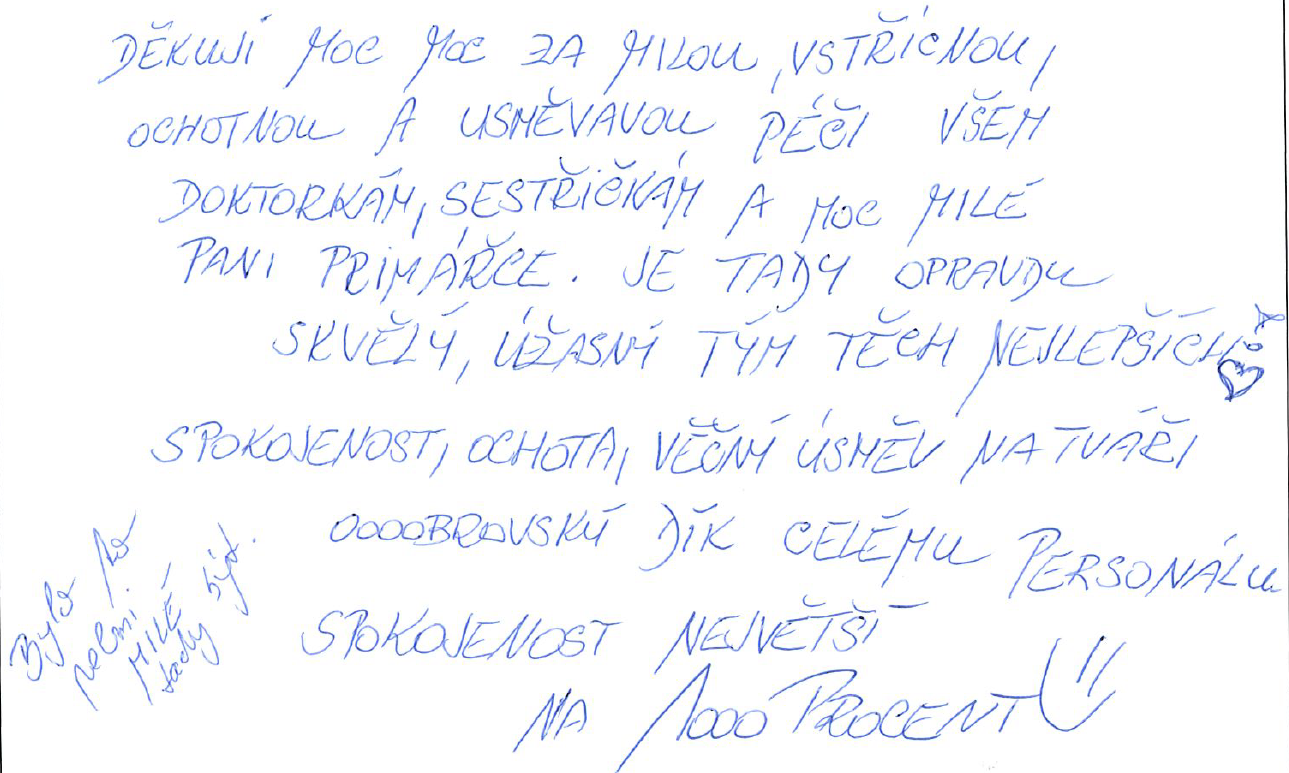 DĚKUJI MOC MOC ZA MILOU, VSTŘÍCNOU,
OCHOTNOU A USMĚVAVOU PÉČI VŠEM
DOKTORKÁM, SESTŘIČKÁM A MOC MILÉ
PANI PRIMÁŘCE. JE TADY OPRAVDU
SKVĚLÝ, ÚŽASNÝ TÝM TĚCH NEJLEPŠÍCH
SPOKOJENOST, OCHOTA, VĚČNÝ ÚSMĚV NA TVÁŘI
OOOOBROVSKÝ DÍK CELÉMU PERSONÁLU
SPOKOJENOST NEJVĚTŠÍ
NA 1000 PROCENT
Bylo to
velmi
MILÉ
tady být.